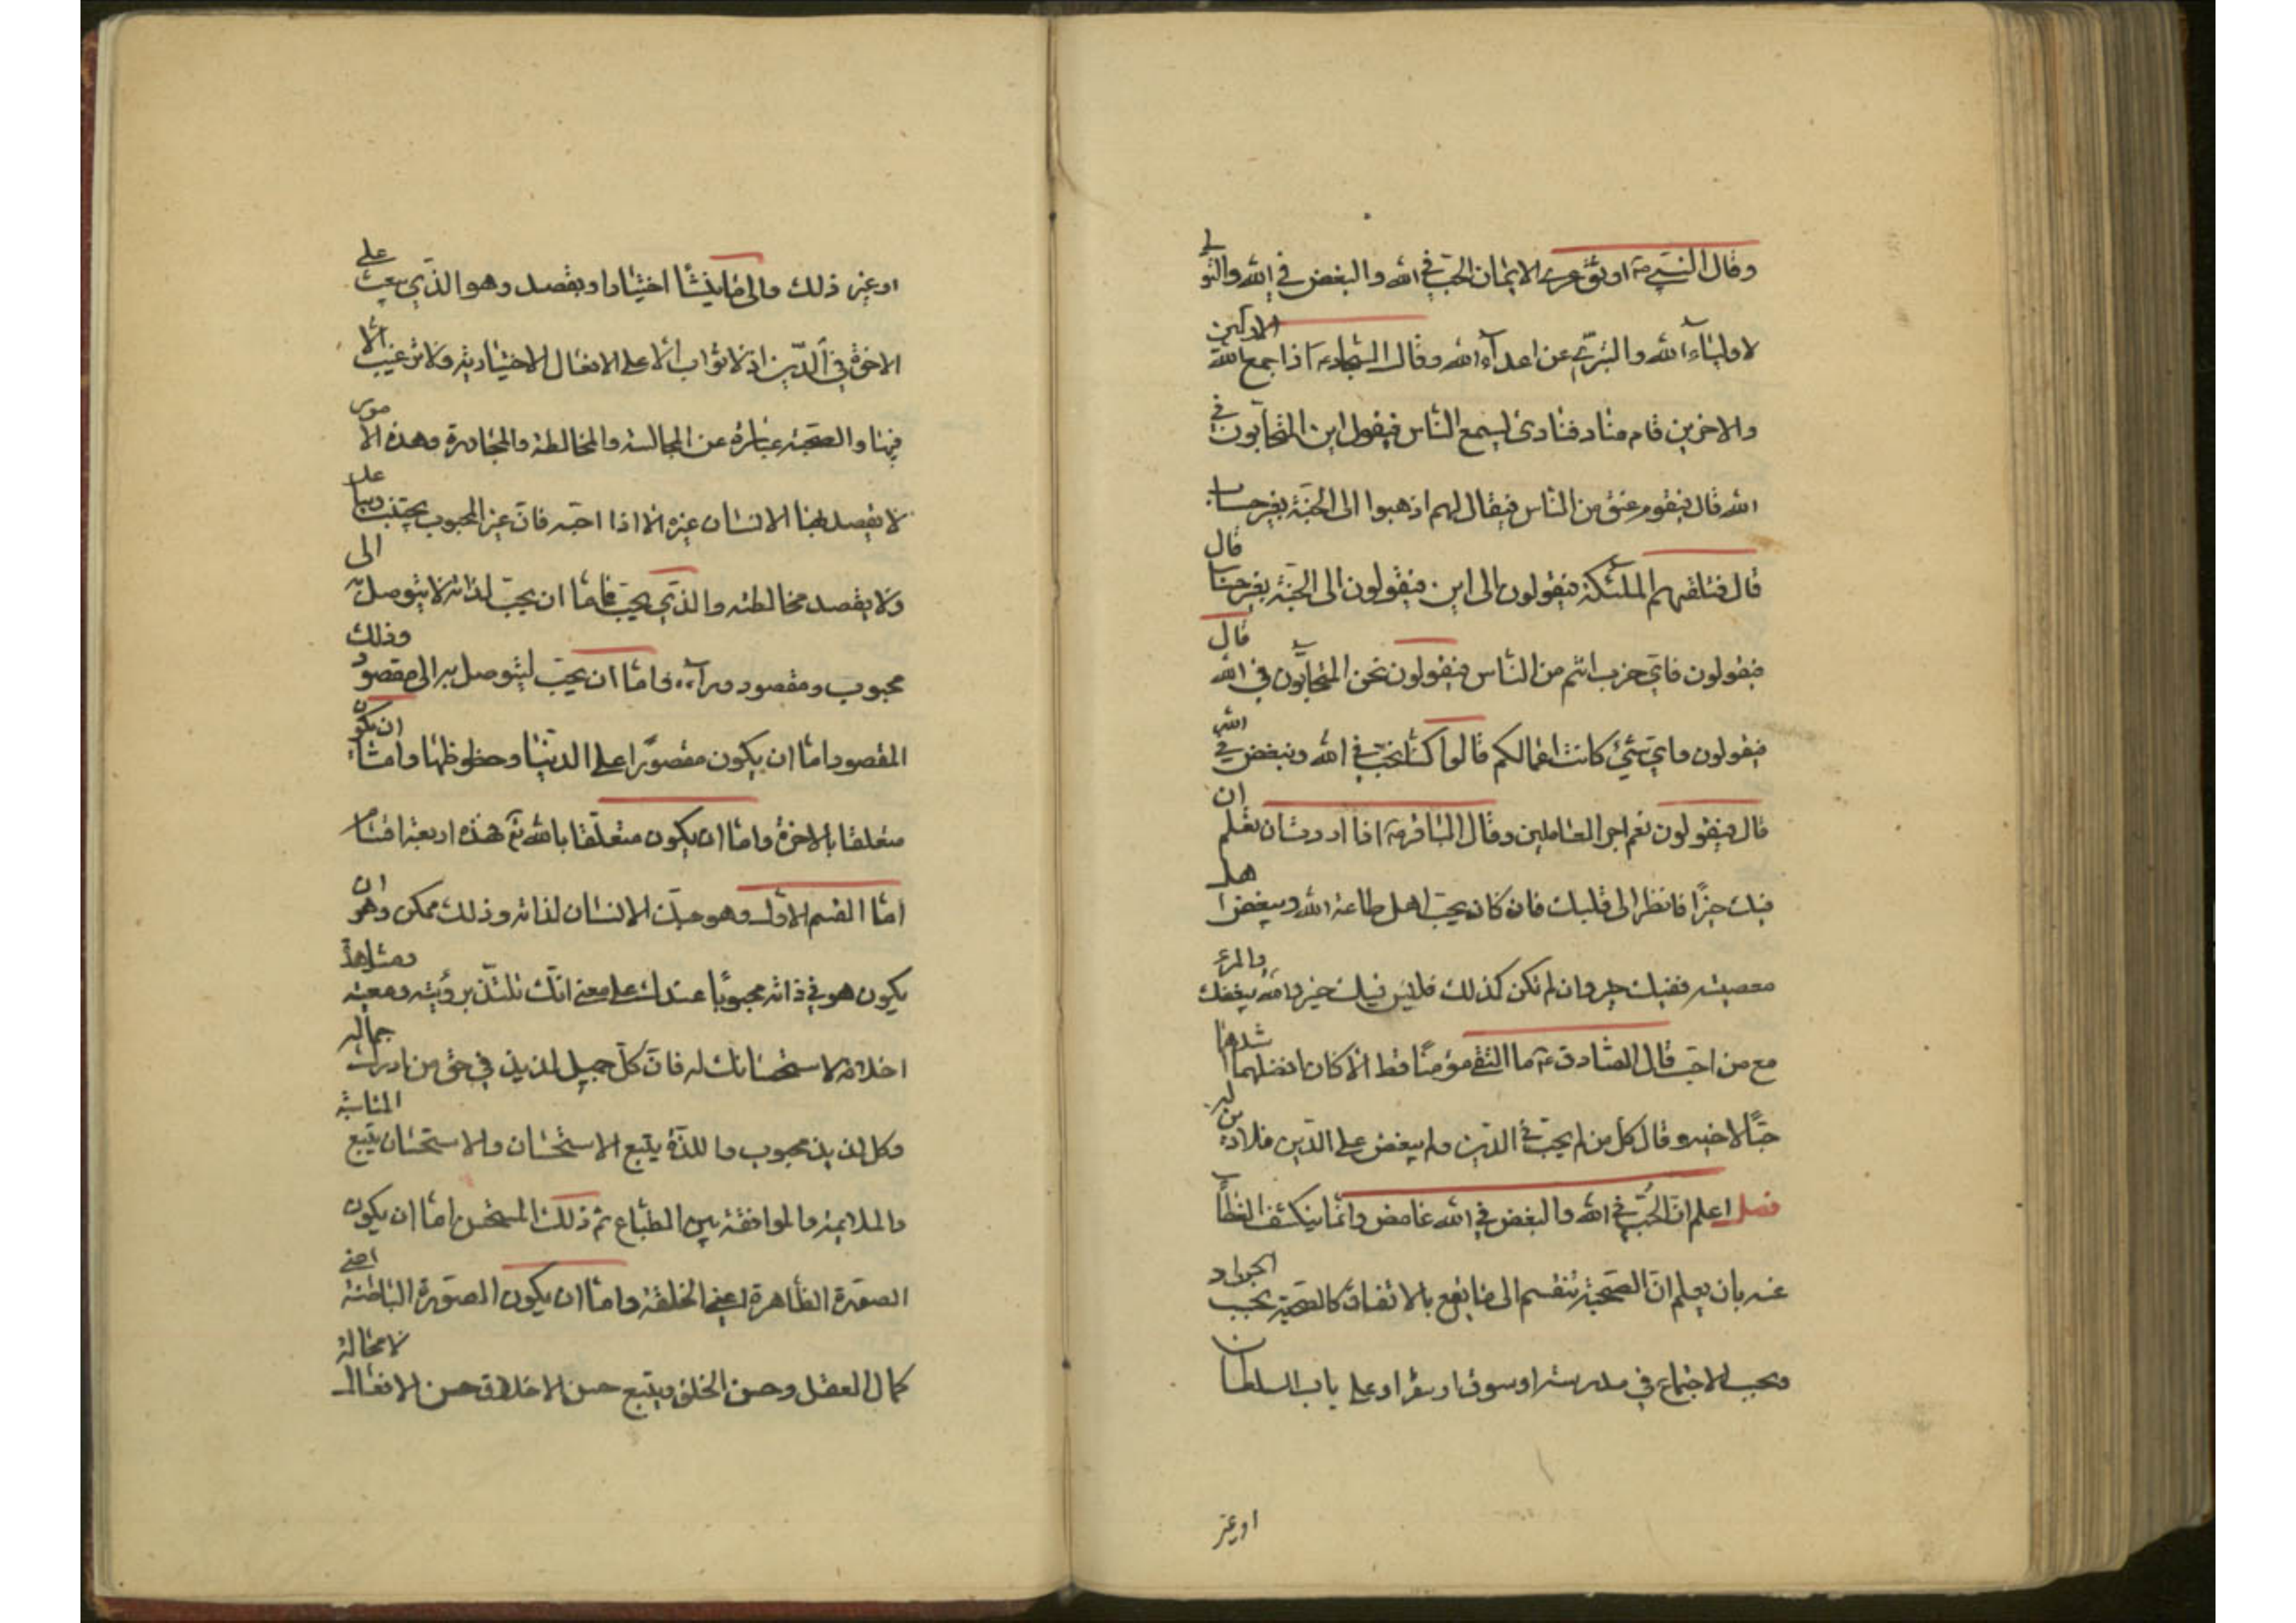 وقال النبي ص اوثق عرى الايمان الحب في الله والبغض في الله والتولي
لاولياء الله والتبري عن اعداء الله وقال السجاد ع اذا جمع الله الاولين
والاخرين قام مناد فنادى ليسمع الناس فيقول اين المتحابون في
الله قال فيقوم عنق من الناس فيقال لهم اذهبوا الى الجنة بغير حساب
قال فتلقهم الملئكة فيقولون الى اين فيقولون الى الجنة بغير حساب قال
فيقولون فاي حزب انتم من الناس فيقولون نحن المتحابون في الله قال
فيقولون واي شيء كانت اعمالكم قالوا كنا نحب في الله ونبغض في الله
قال فيقولون نعم اجر العاملين وقال الباقر ع اذا اردت ان تعلم ان
فيك خيرا فانظر الى قلبك فان كان يحب اهل طاعة الله ويبغض اهل
معصيته ففيك خير وان لم تكن كذلك فليس فيك خير والله يبغضك والمرء
مع من احب قال الصادق ع ما التقى مؤمنا قط الا كان افضلهما اشدهما
حبا لاخيه وقال كل من لم يحب في الدين ولم يبغض على الدين فلا دين له
فصل اعلم ان الحب في الله والبغض في الله غامض وانما ينكشف الغطاء
عنه بان يعلم ان الصحبة تنقسم الى ما يقع بالاتفاق كالصحبة بحسب الجوار او
بحسب الاجتماع في مدرسة او سوق او سفر او على باب السلطان
او غير
او غير ذلك والى ما ينشا اختيارا ويقصد وهو الذي يبعث على
الاخوة في الدين اذ لا ثواب الا على الافعال الاختيارية ولا ترغيب الا
فيها والصحبة عبارة عن المجالسة والمخالطة والمجاورة وهذه الامور
لا يقصد بها الانسان غيره الا اذا احبه فان غير المحبوب يجتنب ويباعد
ولا يقصد مخالطته والذي يحب فاما ان يحب لذاته لا ليتوصل به الى
محبوب ومقصود وراءه واما ان يحب ليتوصل به الى مقصود وذلك
المقصود اما ان يكون مقصورا على الدنيا وحظوظها واما ان يكون
متعلقا بالاخرة واما ان يكون متعلقا بالله تع هذه اربعة اقسام
اما القسم الاول وهو حبك الانسان لذاته وذلك ممكن وهو ان
يكون هو في ذاته محبوبا عندك على معنى انك تلتذ برؤيته ومعيته ومشاهدة
اخلاقه لاستحسانك له فان كل جميل لذيذ في حق من ادرك جماله
وكل لذيذ محبوب واللذة يتبع الاستحسان والاستحسان يتبع المناسبة
والملايمة والموافقة بين الطباع ثم ذلك المستحسن اما ان يكون
الصورة الظاهرة اعني الخلقة واما ان يكون الصورة الباطنة اعني
كمال العقل وحسن الخلق ويتبع حسن الاخلاق حسن الافعال لا محالة